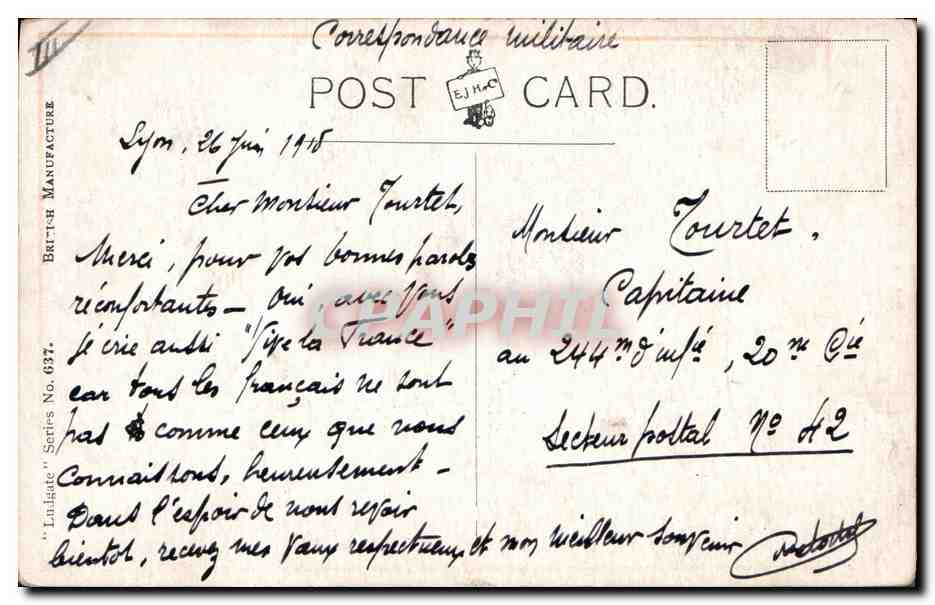 III
Correspondance militaire
POST CARD.
E.J.H & Co
"Ludgate" Series No. 637. BRITISH MANUFACTURE
Lyon, 26 Juin 1915
Cher Monsieur Tourtet,
Merci, pour vos bonnes paroles
réconfortantes — Oui, avec Vous
je crie aussi "Vive la France"
car tous les français ne sont
pas comme ceux que nous
connaissons, heureusement —
Dans l'espoir de nous revoir
bientôt, recevez mes vœux respectueux et mon meilleur souvenir
Monsieur Tourtet,
Capitaine
au 244me d'infie, 20me Cie
Secteur postal No 42
CPAPHIL